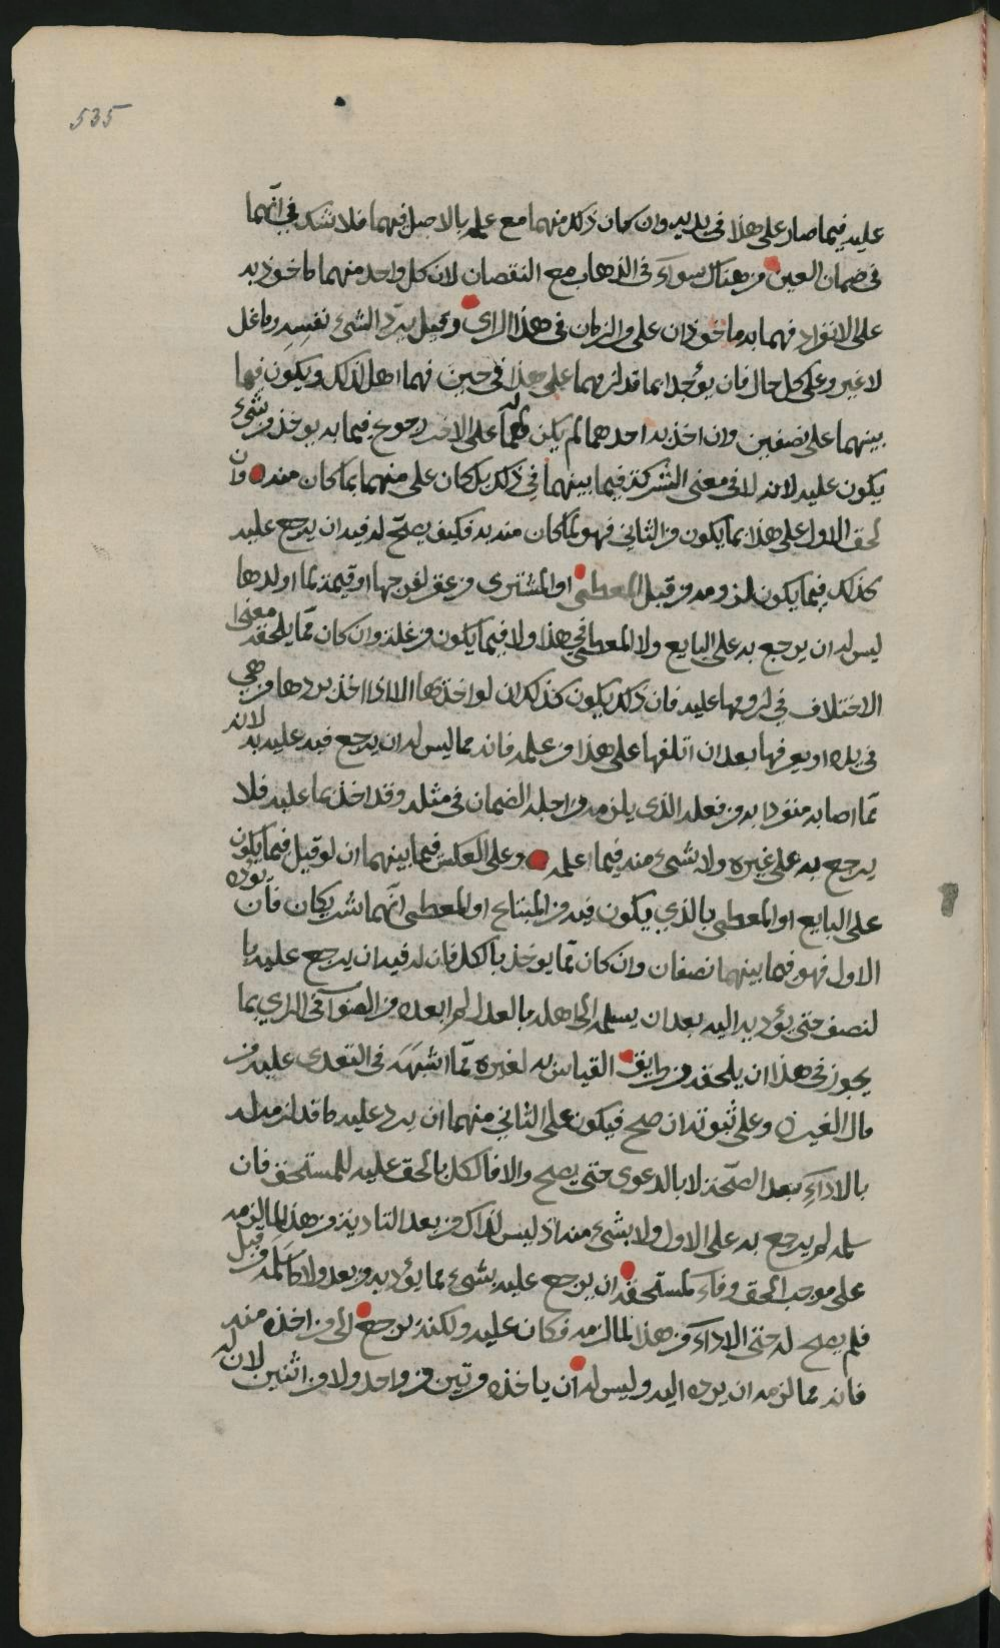 535
عليه فيما صار على هذا في يديه وان كان ذلك منهما مع علم بالاصل فيهما فلا شك في انهما
في ضمان العين من هناك سوآء في الذهاب مع النقصان لان كل واحد منهما ماخوذ به
على الانفراد فهما به ماخوذان على والزمان في هذا الراي وقيل يرد الشيء نفسه وما غل
لا غير وعلى كل حال فان يوجدا بما قد لزمهما على هذا في حين فهما اهل لذلك ويكون فيها
بينهما على نصفين وان اخذ به احدهما لم يكن له على الاخر رجوع فيما به يوخذ من شيء
يكون عليه لانه لا في معنى الشركة فيما بينهما في ذلك بل كان على منهما بما كان منه وان
لحق الاول على هذا بما يكون من الثاني فهو لما كان منه به فكيف يصح له فيه ان يرجع عليه
كذلك فيما يكون لزومه من قبل المعطى او المشتري من عقر لفرجها او قيمة لما اولدها
ليس له ان يرجع به على البايع ولا المعطي في هذا ولا فيما يكون من غلة وان كان مما يلحقه معنى
الاختلاف في لزومها عليه فان ذلك يكون كذلك ان لو اخذها الا اذا اخذ بردها من هي
في يده او يعرفها بعد ان اتلفها على هذا من علمه فانه مما ليس له ان يرجع فيه عليه به لانه
مما اصابه منفردا به من فعله الذي يلزمه من اجله الضمان في مثله وقد اخذ بما عليه فلا
يرجع به على غيره ولا شيء منه فيما اعلمه وعلى العكس فيما بينهما ان لو قيل فيما يكون
على البايع او المعطي بالذي يكون فيه من المبتاع او المعطى انهما شريكان فان يوده
الاول فهو فيما بينهما نصفان وان كان مما يوخذ بالكل فان له فيه ان يرجع عليه با
لنصف حتى يؤديه اليه بعد ان يسلمه الى اهله بالعدل لم ابعده من الصواب في الراي بما
يجوز في هذا ان يلحقه من طريق القياس به لغيره مما اشبهه في التعدي عليه من
مال الغير وعلى ثبوته ان صح فيكون على الثاني منهما ان يرد عليه ما قد لزمه له
بالاداء بعد الصحة لا بالدعوى حتى يصح والا فالكل بالحق عليه للمستحق فان
سلمه لم يرجع به على الاول ولا بشيء منه اذ ليس لذاك من بعد التادية من هذا لما لزمه
على موجب الحق وفاء لمستحقه ان يرجع عليه بشيء مما يؤديه من بعد ولا ما سلمه من قبل
فلم يصح له حتى الاداء من هذا لما لزمه فكان عليه ولكنه يرجع الى من اخذه منه
فانه مما لزمه ان يرده اليه وليس له ان ياخذه مرتين من واحد ولا من اثنين لان له